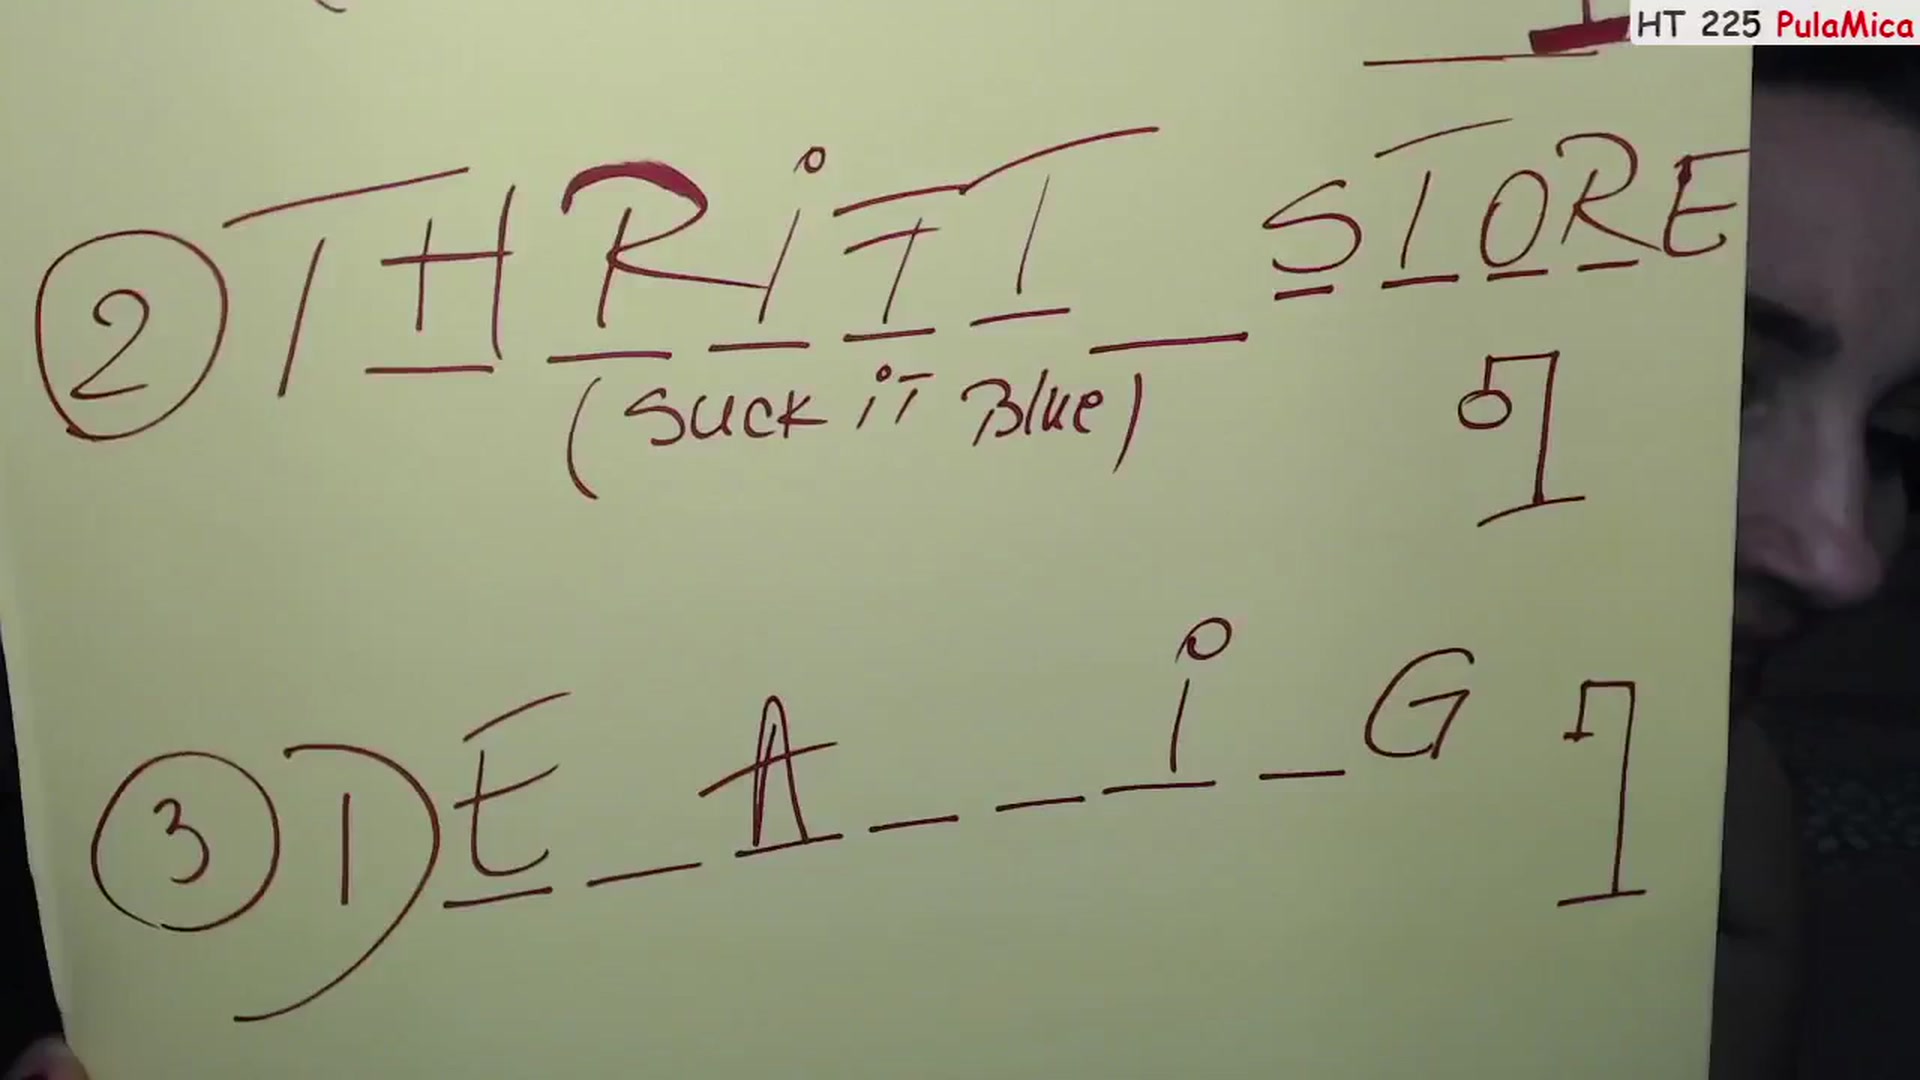 HT 225 PulaMica
2 THRiFT __ STORE
(SUCK iT Blue)
3 DE _ A _ _ i _ G